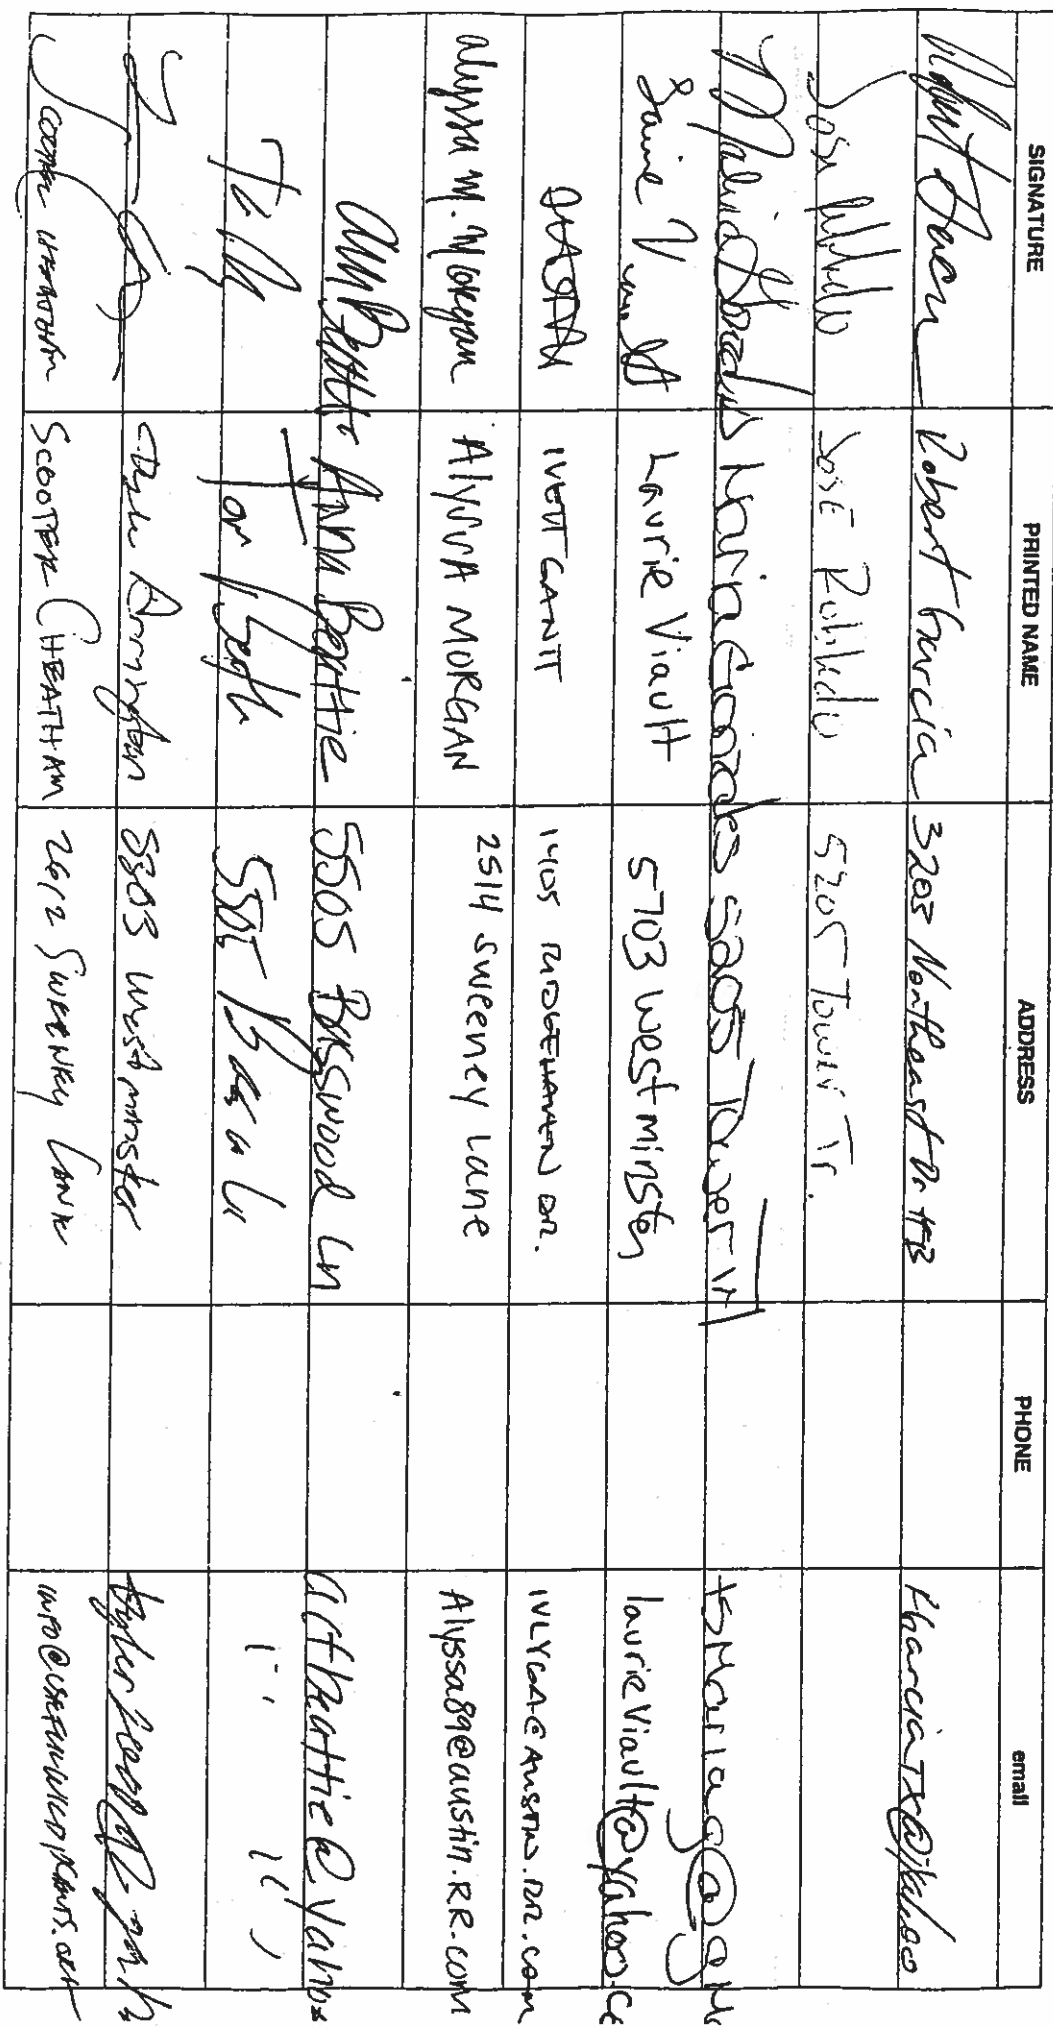 SIGNATURE PRINTED NAME ADDRESS PHONE email
Robert Garcia 3203 Northeast Dr
Jose Robledo José Robledo 5205 Tower Tr.
Maria Gonzales Maria Gonzales 5205 Tower Trl
Laurie Viault Laurie Viault 5703 Westminster laurieViault@yahoo.co
IVETT GANTT 1405 RIDGEHAVEN DR. IVLYGA@AUSTIN.RR.COM
Alyssa M. Morgan AlyssA MORGAN 2514 Sweeney Lane Alyssa89@austin.RR.com
Ann Beattie Ann Beattie 5505 Basswood Ln acfbeattie@yahoo
5505 " "
5303 Westminster
Scooter Cheatham SCOOTER CHEATHAM 2612 SWEENEY LANE INFO@USEFULWILDPLANTS.ORG